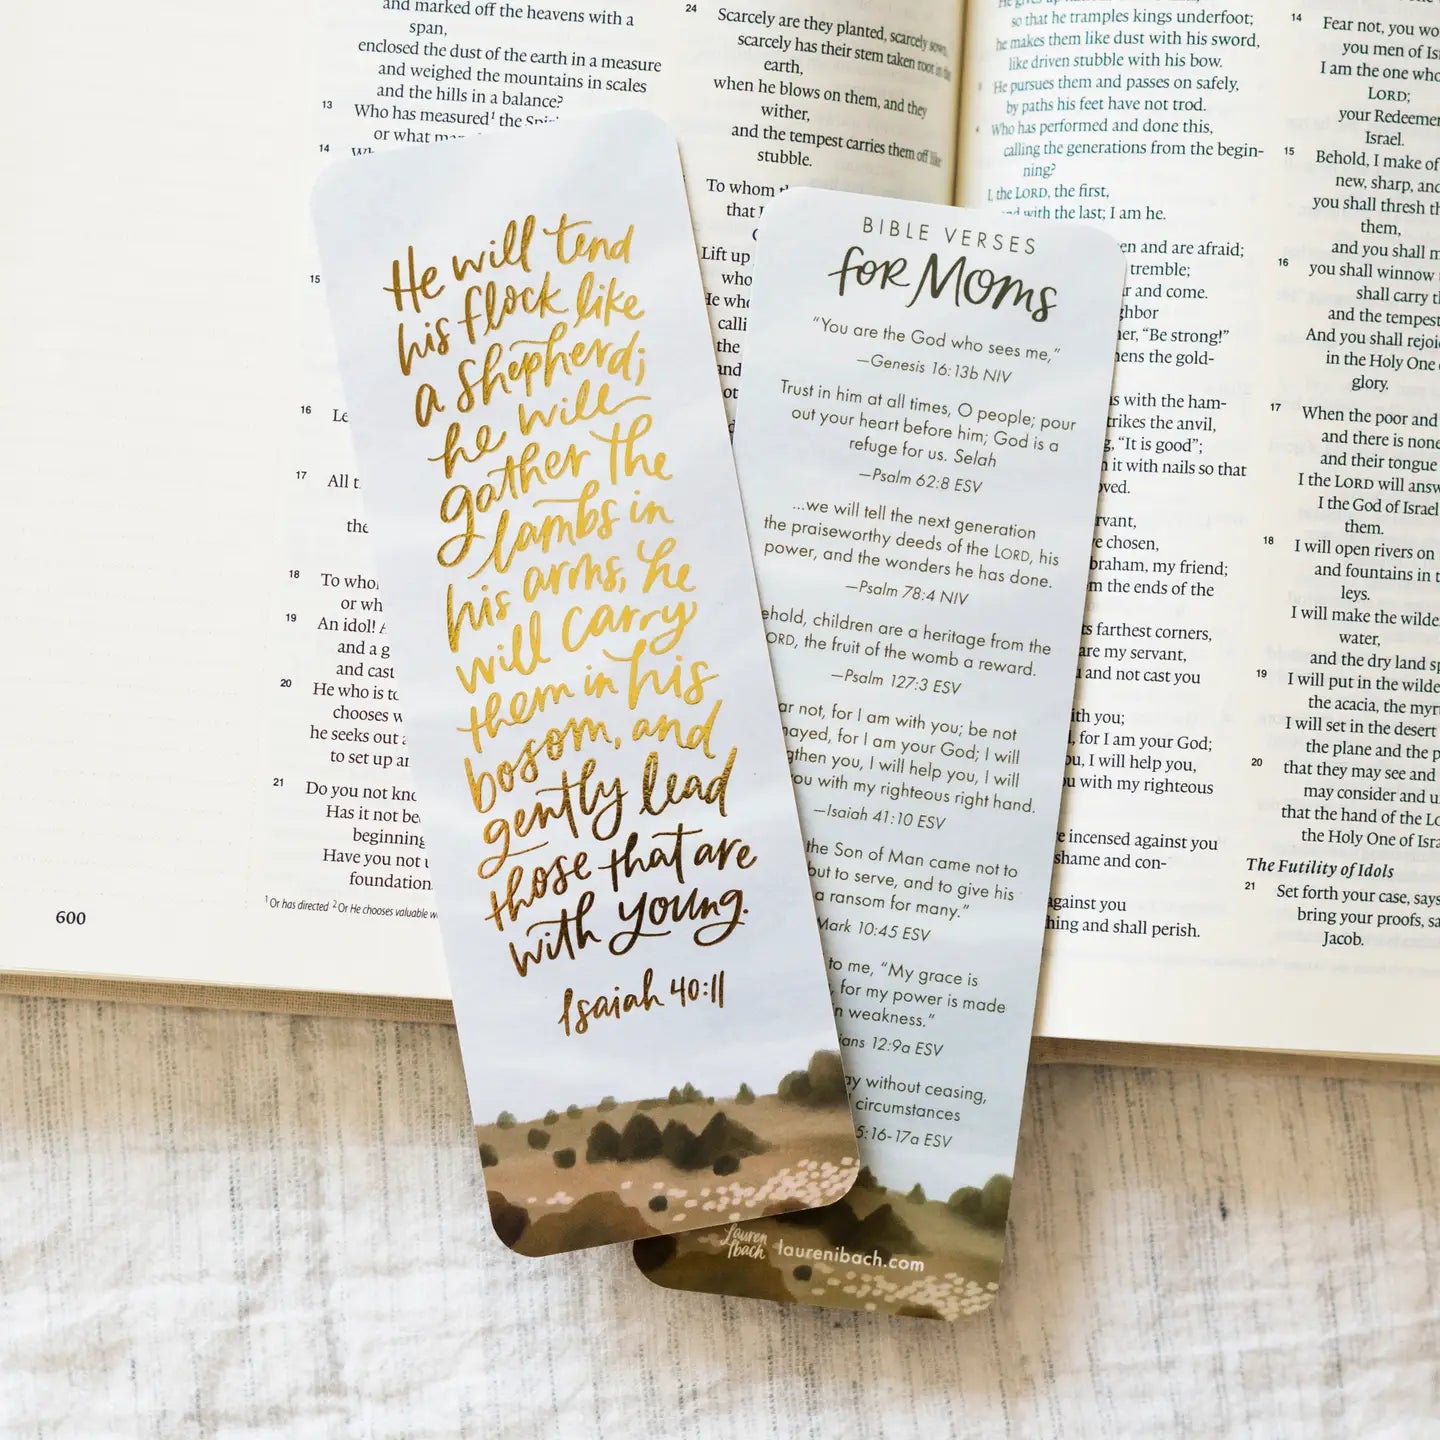 and marked off the heavens with a
span,
enclosed the dust of the earth in a measure
and weighed the mountains in scales
and the hills in a balance?
13 Who has measured¹ the
or what
14
15
16
17 All
the
18 To
or wh
19 An idol!
and a g
and cast
20 He who is
chooses
he seeks out
to set up
21 Do you not
Has it not
beginning
Have you not
foundation
¹ Or has directed ² Or He chooses valuable
600
24 Scarcely are they planted, scarcely sown,
scarcely has their stem taken root in the
earth,
when he blows on them, and they
wither,
and the tempest carries them off like
stubble.
To whom
that
Lift up
who
He
calli
the
and
He will tend
his flock like
a shepherd;
he will
gather the
lambs in
his arms, he
will carry
them in his
bosom, and
gently lead
those that are
with young.
Isaiah 40:11
BIBLE VERSES
for Moms
"You are the God who sees me,"
—Genesis 16:13b NIV
Trust in him at all times, O people; pour
out your heart before him; God is a
refuge for us. Selah
—Psalm 62:8 ESV
...we will tell the next generation
the praiseworthy deeds of the LORD, his
power, and the wonders he has done.
—Psalm 78:4 NIV
ehold, children are a heritage from the
ORD, the fruit of the womb a reward.
—Psalm 127:3 ESV
ar not, for I am with you; be not
mayed, for I am your God; I will
gthen you, I will help you, I will
you with my righteous right hand.
—Isaiah 41:10 ESV
the Son of Man came not to
but to serve, and to give his
a ransom for many."
Mark 10:45 ESV
to me, "My grace is
for my power is made
n weakness."
ians 12:9a ESV
ay without ceasing,
circumstances
5:16-17a ESV
Lauren
Ibach
laurenibach.com
He gives up
so that he tramples kings underfoot;
he makes them like dust with his sword,
like driven stubble with his bow.
He pursues them and passes on safely,
by paths his feet have not trod.
Who has performed and done this,
calling the generations from the begin-
ning?
I, the LORD, the first,
and with the last; I am he.
en and are afraid;
tremble;
r and come.
ghbor
er, "Be strong!"
ens the gold-
s with the ham-
trikes the anvil,
g, "It is good";
it with nails so that
oved.
rvant,
e chosen,
braham, my friend;
m the ends of the
ts farthest corners,
are my servant,
and not cast you
ith you;
, for I am your God;
ou, I will help you,
u with my righteous
e incensed against you
shame and con-
against you
hing and shall perish.
14 Fear not, you wo
you men of Isr
I am the one who
LORD;
your Redeemer
Israel.
15 Behold, I make of
new, sharp, and
you shall thresh th
them,
and you shall m
16 you shall winnow
shall carry th
and the tempest
And you shall rejoi
in the Holy One
glory.
17 When the poor and
and there is none
and their tongue
I the LORD will answ
I the God of Israel
them.
18 I will open rivers on
and fountains in t
leys.
I will make the wilde
water,
and the dry land sp
19 I will put in the wilde
the acacia, the myr
I will set in the desert
the plane and the p
20 that they may see and
may consider and u
that the hand of the Lo
the Holy One of Isra
The Futility of Idols
21 Set forth your case, says
bring your proofs, sa
Jacob.